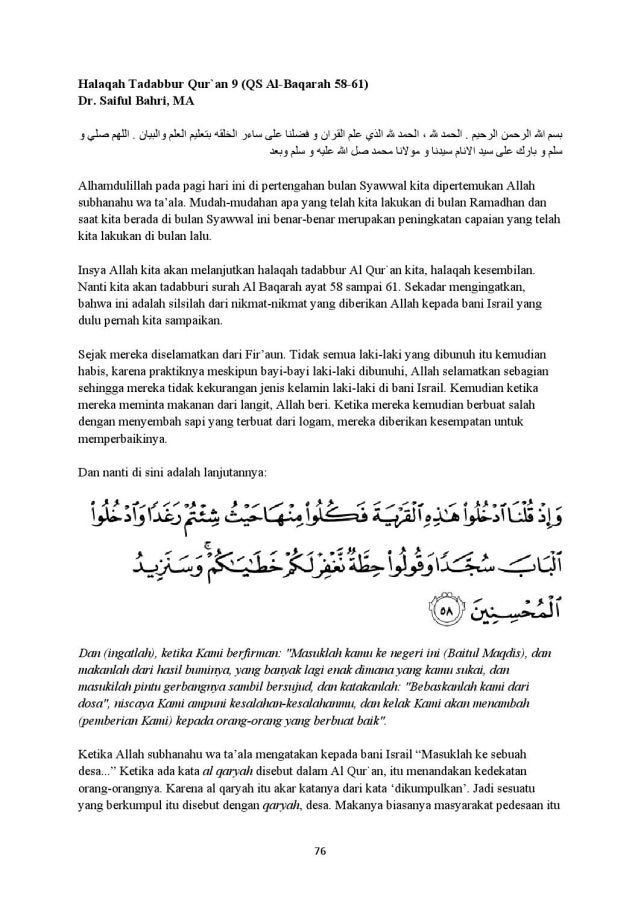 Halaqah Tadabbur Qur`an 9 (QS Al-Baqarah 58-61)
Dr. Saiful Bahri, MA
بسم الله الرحمن الرحيم . الحمد لله ، الحمد لله الذي علم القران و فضلنا على ساءر الخلقه بتعليم العلم والبيان . اللهم صلي و
سلم و بارك على سيد الانام سيدنا و مولانا محمد صل الله عليه و سلم وبعد
Alhamdulillah pada pagi hari ini di pertengahan bulan Syawwal kita dipertemukan Allah
subhanahu wa ta’ala. Mudah-mudahan apa yang telah kita lakukan di bulan Ramadhan dan
saat kita berada di bulan Syawwal ini benar-benar merupakan peningkatan capaian yang telah
kita lakukan di bulan lalu.
Insya Allah kita akan melanjutkan halaqah tadabbur Al Qur`an kita, halaqah kesembilan.
Nanti kita akan tadabburi surah Al Baqarah ayat 58 sampai 61. Sekadar mengingatkan,
bahwa ini adalah silsilah dari nikmat-nikmat yang diberikan Allah kepada bani Israil yang
dulu pernah kita sampaikan.
Sejak mereka diselamatkan dari Fir’aun. Tidak semua laki-laki yang dibunuh itu kemudian
habis, karena praktiknya meskipun bayi-bayi laki-laki dibunuhi, Allah selamatkan sebagian
sehingga mereka tidak kekurangan jenis kelamin laki-laki di bani Israil. Kemudian ketika
mereka meminta makanan dari langit, Allah beri. Ketika mereka kemudian berbuat salah
dengan menyembah sapi yang terbuat dari logam, mereka diberikan kesempatan untuk
memperbaikinya.
Dan nanti di sini adalah lanjutannya:
وَإِذْ قُلْنَا ٱدْخُلُوا۟ هَٰذِهِ ٱلْقَرْيَةَ فَكُلُوا۟ مِنْهَا حَيْثُ شِئْتُمْ رَغَدًا وَٱدْخُلُوا۟
ٱلْبَابَ سُجَّدًا وَقُولُوا۟ حِطَّةٌ نَّغْفِرْ لَكُمْ خَطَٰيَٰكُمْ ۚ وَسَنَزِيدُ
ٱلْمُحْسِنِينَ ٥٨
Dan (ingatlah), ketika Kami berfirman: "Masuklah kamu ke negeri ini (Baitul Maqdis), dan
makanlah dari hasil buminya, yang banyak lagi enak dimana yang kamu sukai, dan
masukilah pintu gerbangnya sambil bersujud, dan katakanlah: "Bebaskanlah kami dari
dosa", niscaya Kami ampuni kesalahan-kesalahanmu, dan kelak Kami akan menambah
(pemberian Kami) kepada orang-orang yang berbuat baik".
Ketika Allah subhanahu wa ta’ala mengatakan kepada bani Israil “Masuklah ke sebuah
desa...” Ketika ada kata al qaryah disebut dalam Al Qur`an, itu menandakan kedekatan
orang-orangnya. Karena al qaryah itu akar katanya dari kata ‘dikumpulkan’. Jadi sesuatu
yang berkumpul itu disebut dengan qaryah, desa. Makanya biasanya masyarakat pedesaan itu
76